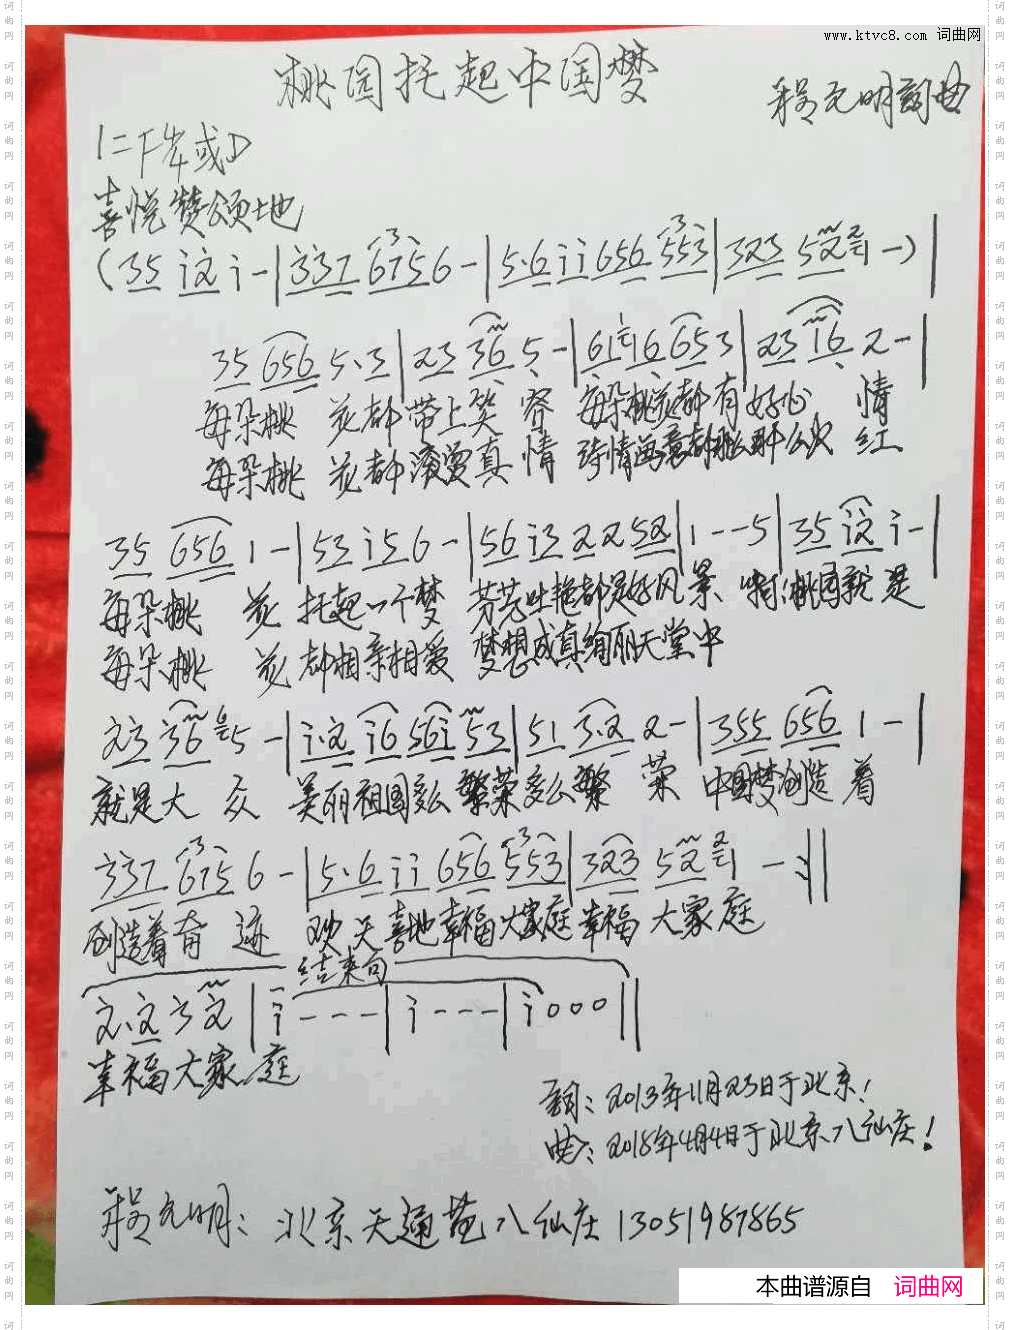 www.ktvc8.com 词曲网
桃园托起中国梦
程元明词曲
1=F 4/4或D
喜悦赞颂地
(35 i2 i - | 337 6756 - | 5·6 ii 656 553 | 323 52 1 - ) |
35 656 5·3 | 23 36 5 - | 61 16 653 | 23 16 2 - |
每朵桃 花都带上笑 容 每朵桃花都有好心 情
每朵桃 花都滚烫真 情 诗情画意都那么那么火 红
35 656 1 - | 53 i56 - | 56 i3 2252 | 1 - - 5 | 35 i2 i - |
每朵桃 花 托起一个梦 芳芯吐艳都是好风景 桃园就是
每朵桃 花 都相亲相爱 梦想成真绚丽天堂中
23 36 5 - | i·2 i6 56i 53 | 51 3·2 2 - | 355 656 1 - |
就是大 众 美丽祖国多么繁荣多么繁 荣 中国梦创造 着
337 6756 - | 5·6 ii 656 553 | 323 52 1 - :||
创造着奇 迹 欢天喜地幸福大家庭幸福 大家庭
结束句
2·2 3 2 | i - - - | i - - - | i 0 0 0 ||
幸福大家庭
词：2013年11月23日于北京！
曲：2018年4月4日于北京八仙庄！
程元明：北京天通苑八仙庄13051987865
本曲谱源自 词曲网